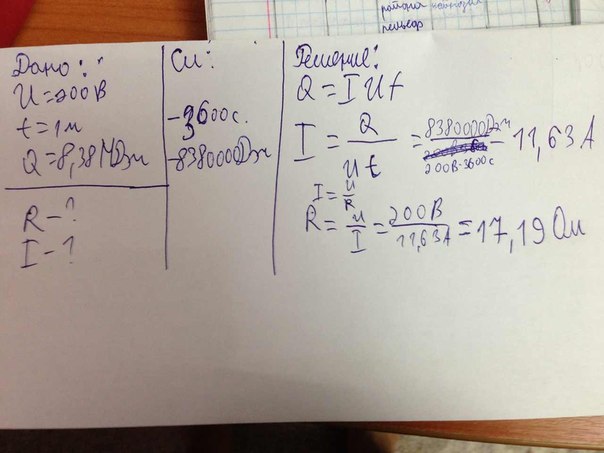 район
рельеф
Дано:
U=200В
t=1ч
Q=8,38МДж
R-?
I-?
Си:
-3600с.
-8380000Дж
Решение:
Q=IUt
I=Q/Ut=8380000Дж/200В·3600с-11,63А
I=U/R
R=U/I=200В/11,63А=17,19Ом